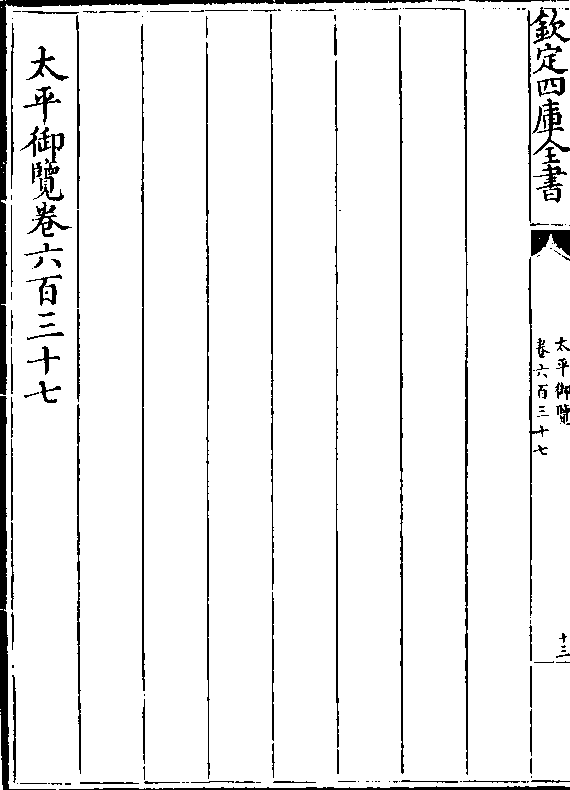 欽定四庫全書
太平御覽
卷六百三十七
十三
太平御覽卷六百三十七